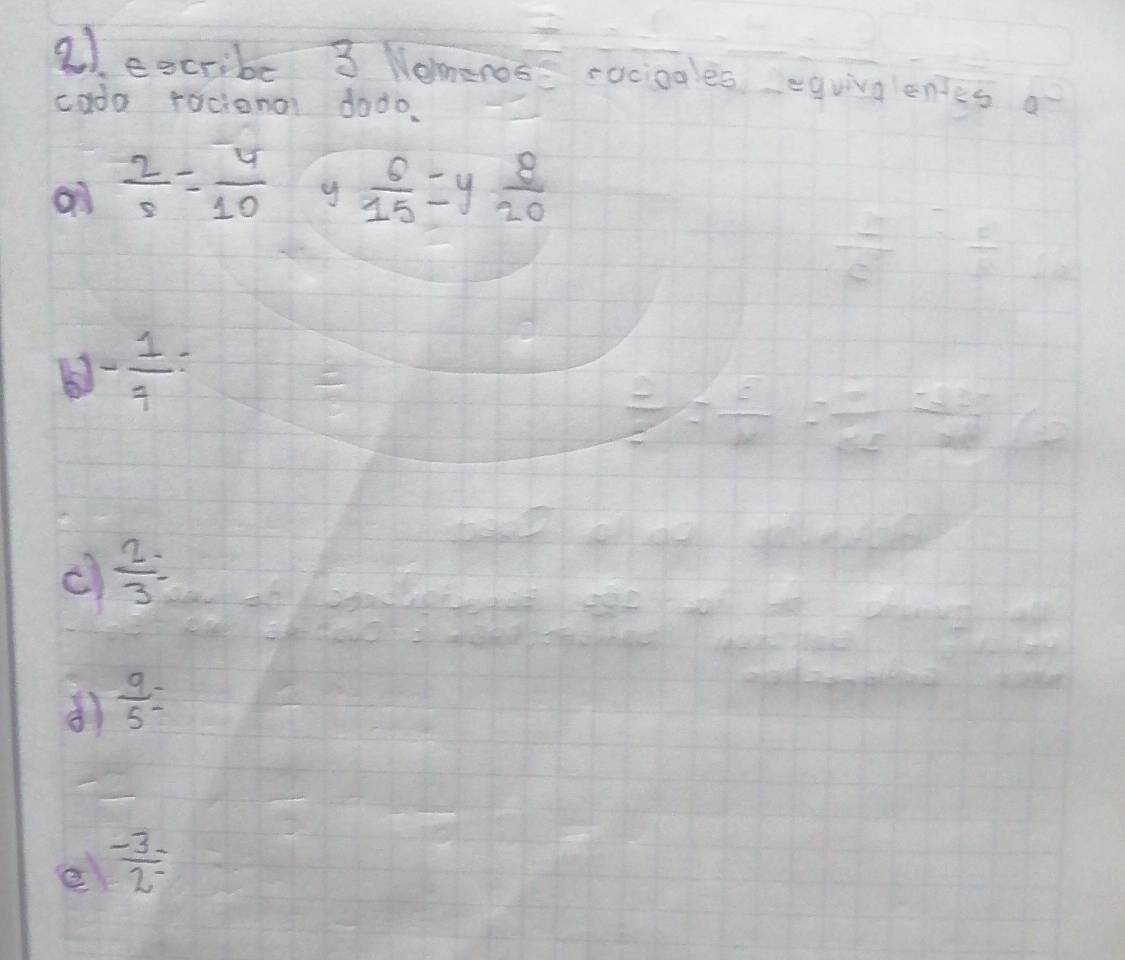 2). escribe 3 Nomeros racioales equivalentes a
cada racional dado.
a) 2/5 = 4/10 y 6/15 = y 8/20
b) - 1/7 =
c) 2/3 =
d) 9/5 =
e) -3/2 =